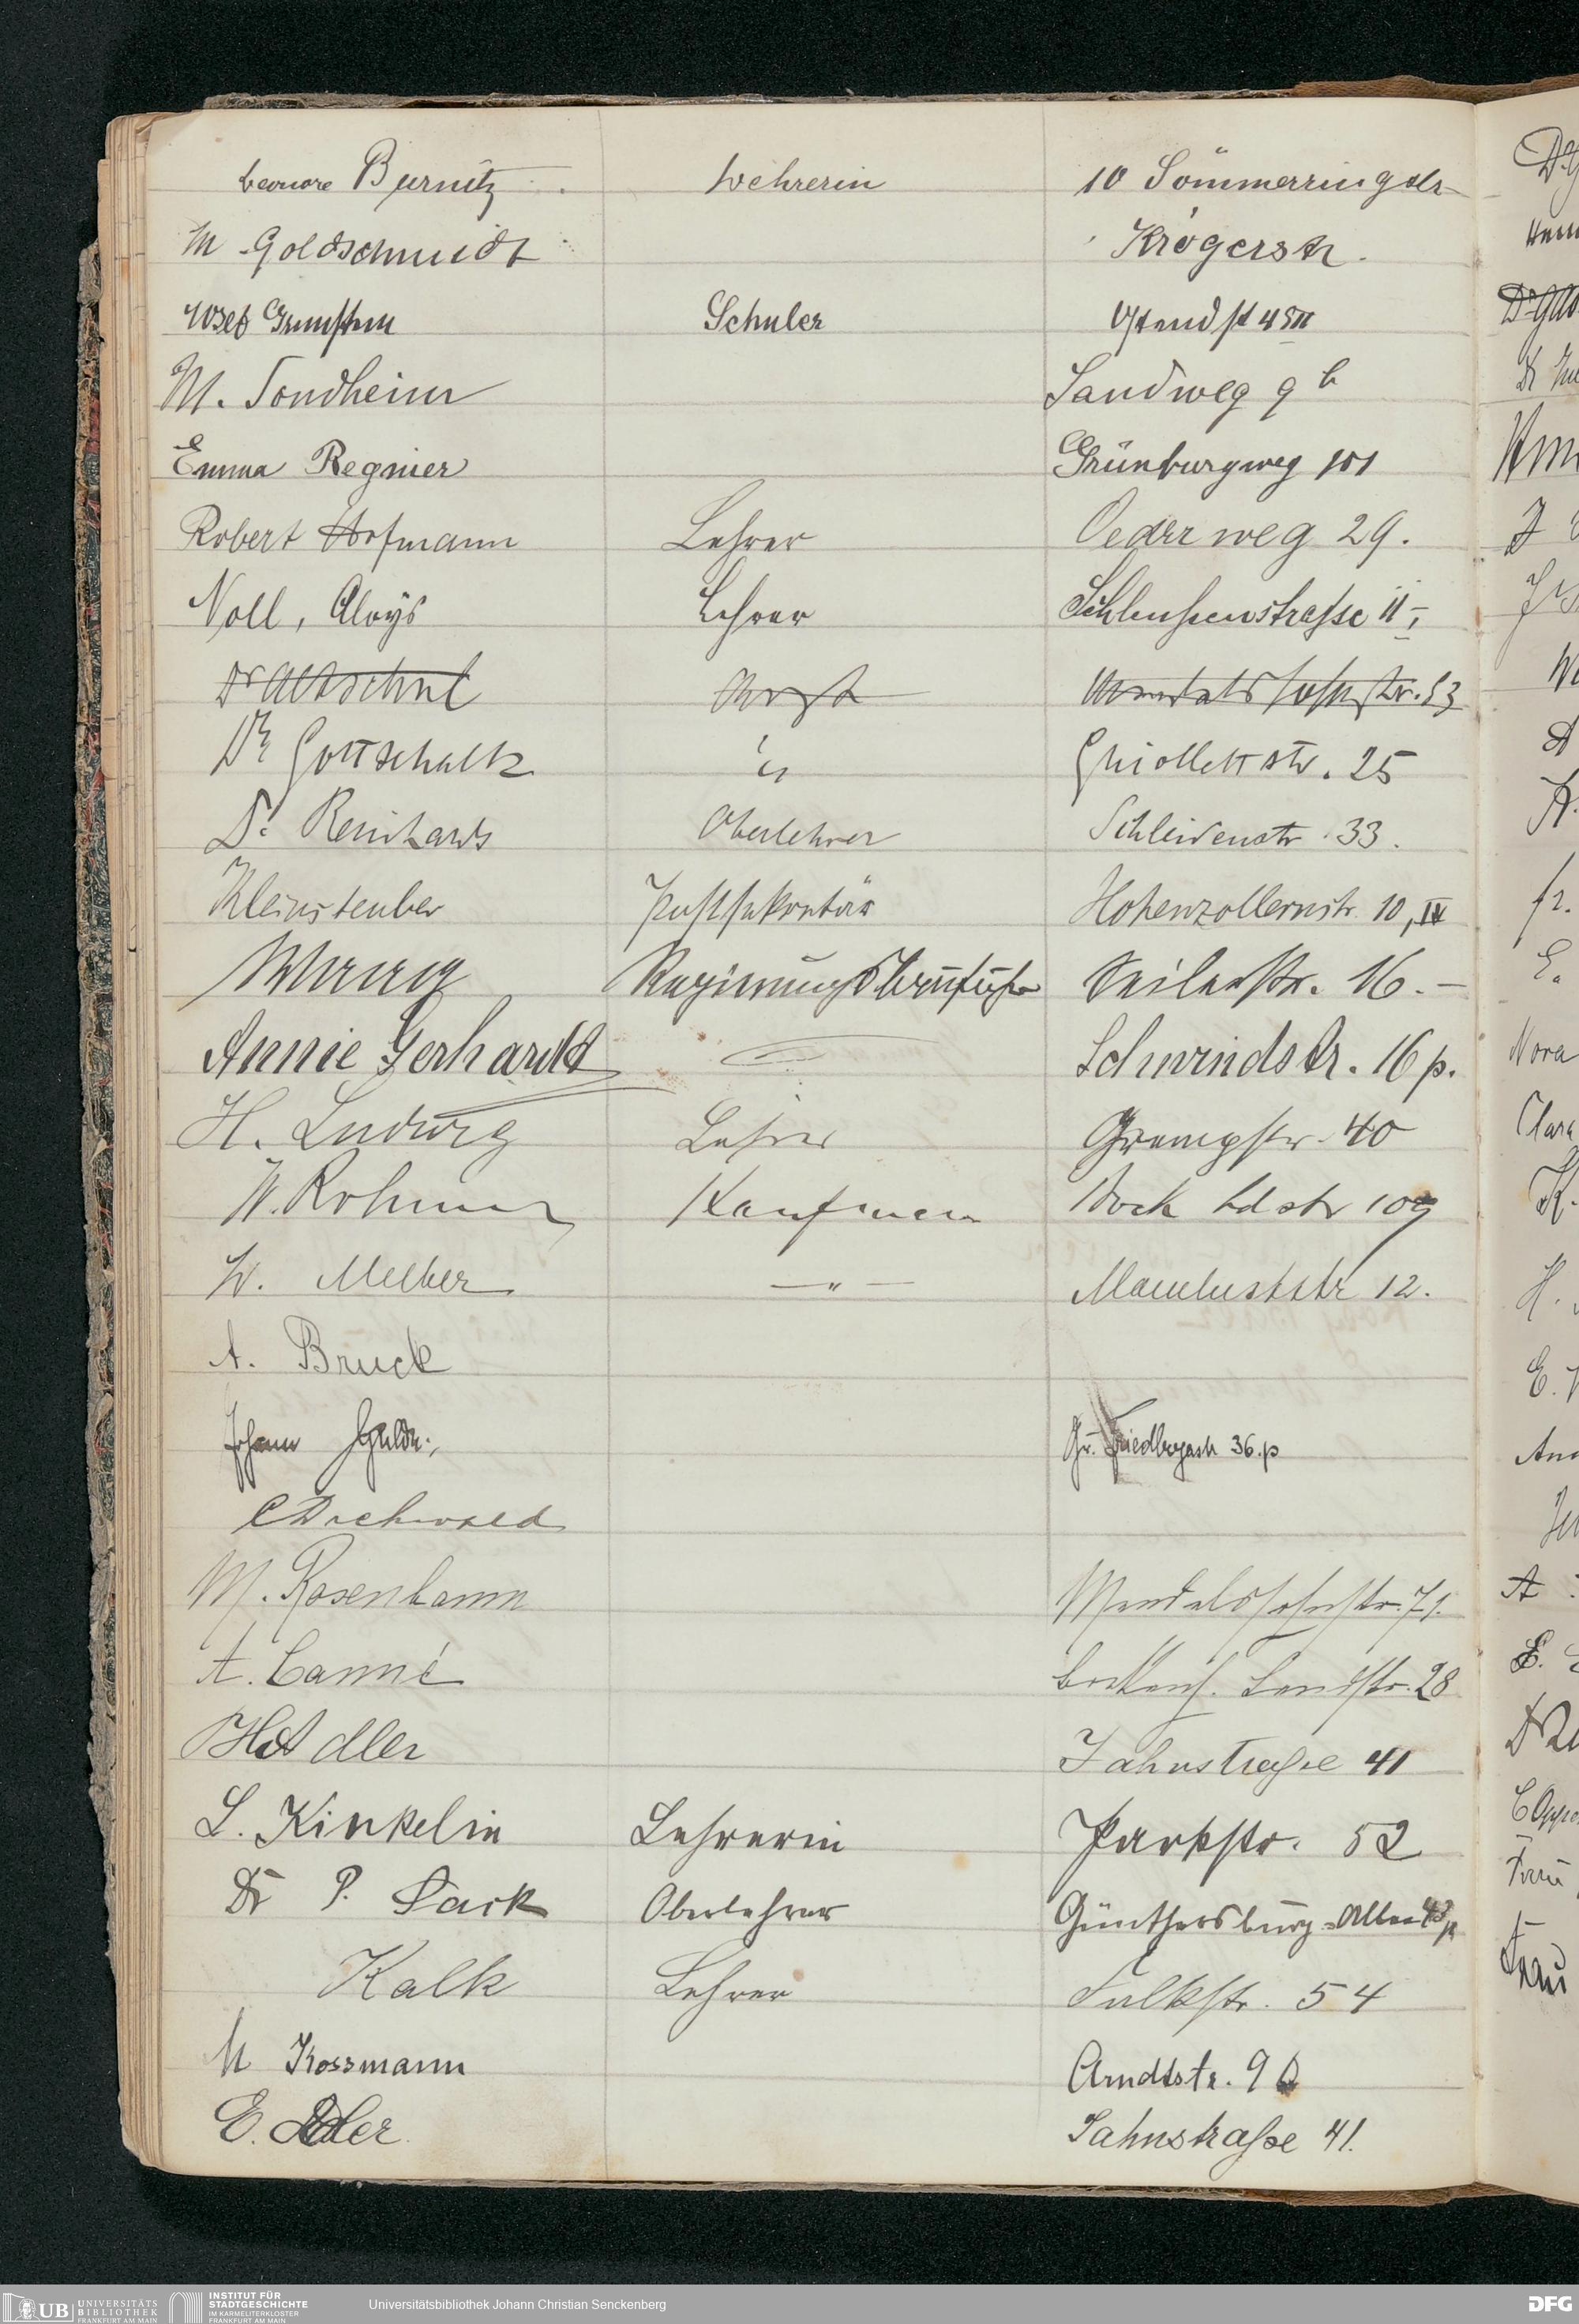 Leonore Burnitz Lehrerin 10 Sömmerringstr
M Goldschmidt Krögerstr.
Josef Grünstein Schüler Ostendst 45II
M. Sondheim Sandweg 9 b
Emma Regnier Grünburgweg 101
Robert Hofmann Lehrer Oederweg 29.
Noll, Aloys Lehrer Schleußenstraße
Dr Altschul Arzt 53
Dr Gottschalk " Guiollettstr. 25
Dr. Reinhards Oberlehrer Schleidenstr. 33.
Kleinsteuber Postsekretär Hohenzollernstr. 10, IV
Regierungsbauführer Seilerstr. 16.–
Annie Gerhardt Schwindstr. 16 p.
H. Ludwig Lehrer Grempstr. 40
W. Rohmer Kaufmann Bock Ldstr 109
W. Melber —"— Mainluststr 12.
A. Bruck
Johann Gr. Friedbergestr 36.p
M. Rosenbaum Mendelssohnstr. 71.
A. Canné Bockenh. Landstr. 28
H Adler Jahnstraße 41
L. Kinkelin Lehrerin Parkstr. 52
Dr P. Sack Oberlehrer Günthersburg-Allee 43p
Kalk Lehrer Falkstr. 54
M Kossmann Arndtstr. 9
E. Adler Jahnstraße 41.
Nora
Clara
UB UNIVERSITÄTS
BIBLIOTHEK
FRANKFURT AM MAIN
INSTITUT FÜR
STADTGESCHICHTE
IM KARMELITERKLOSTER
FRANKFURT AM MAIN
Universitätsbibliothek Johann Christian Senckenberg
DFG